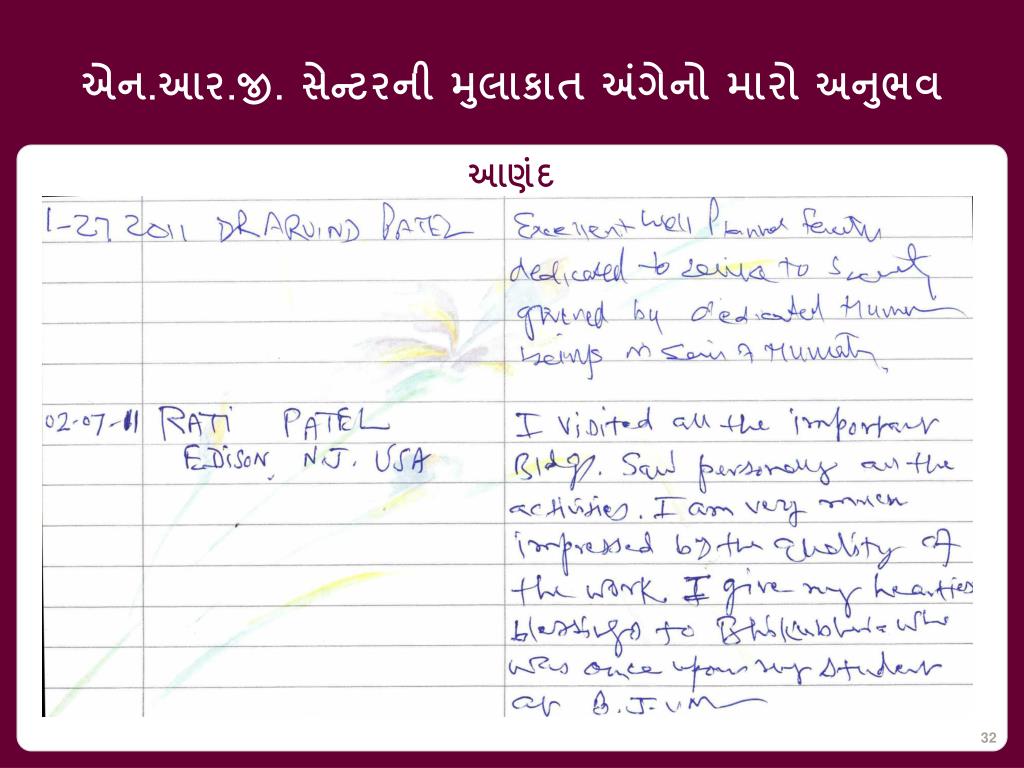 એન.આર.જી. સેન્ટરની મુલાકાત અંગેનો મારો અનુભવ
આણંદ
1-27 2011 DR ARVIND PATEL Excellent Well Planned
dedicated to service to Society
governed by dedicated Human
beings in
02-07-11 RATI PATEL I visited all the important
EDISON, N.J. USA Bldgs. Saw personally all the
activities. I am very much
impressed by the quality of
the work. I give my hearties
blessings to Bhikhubhai who
was once upon my student
at B.J.VM
32